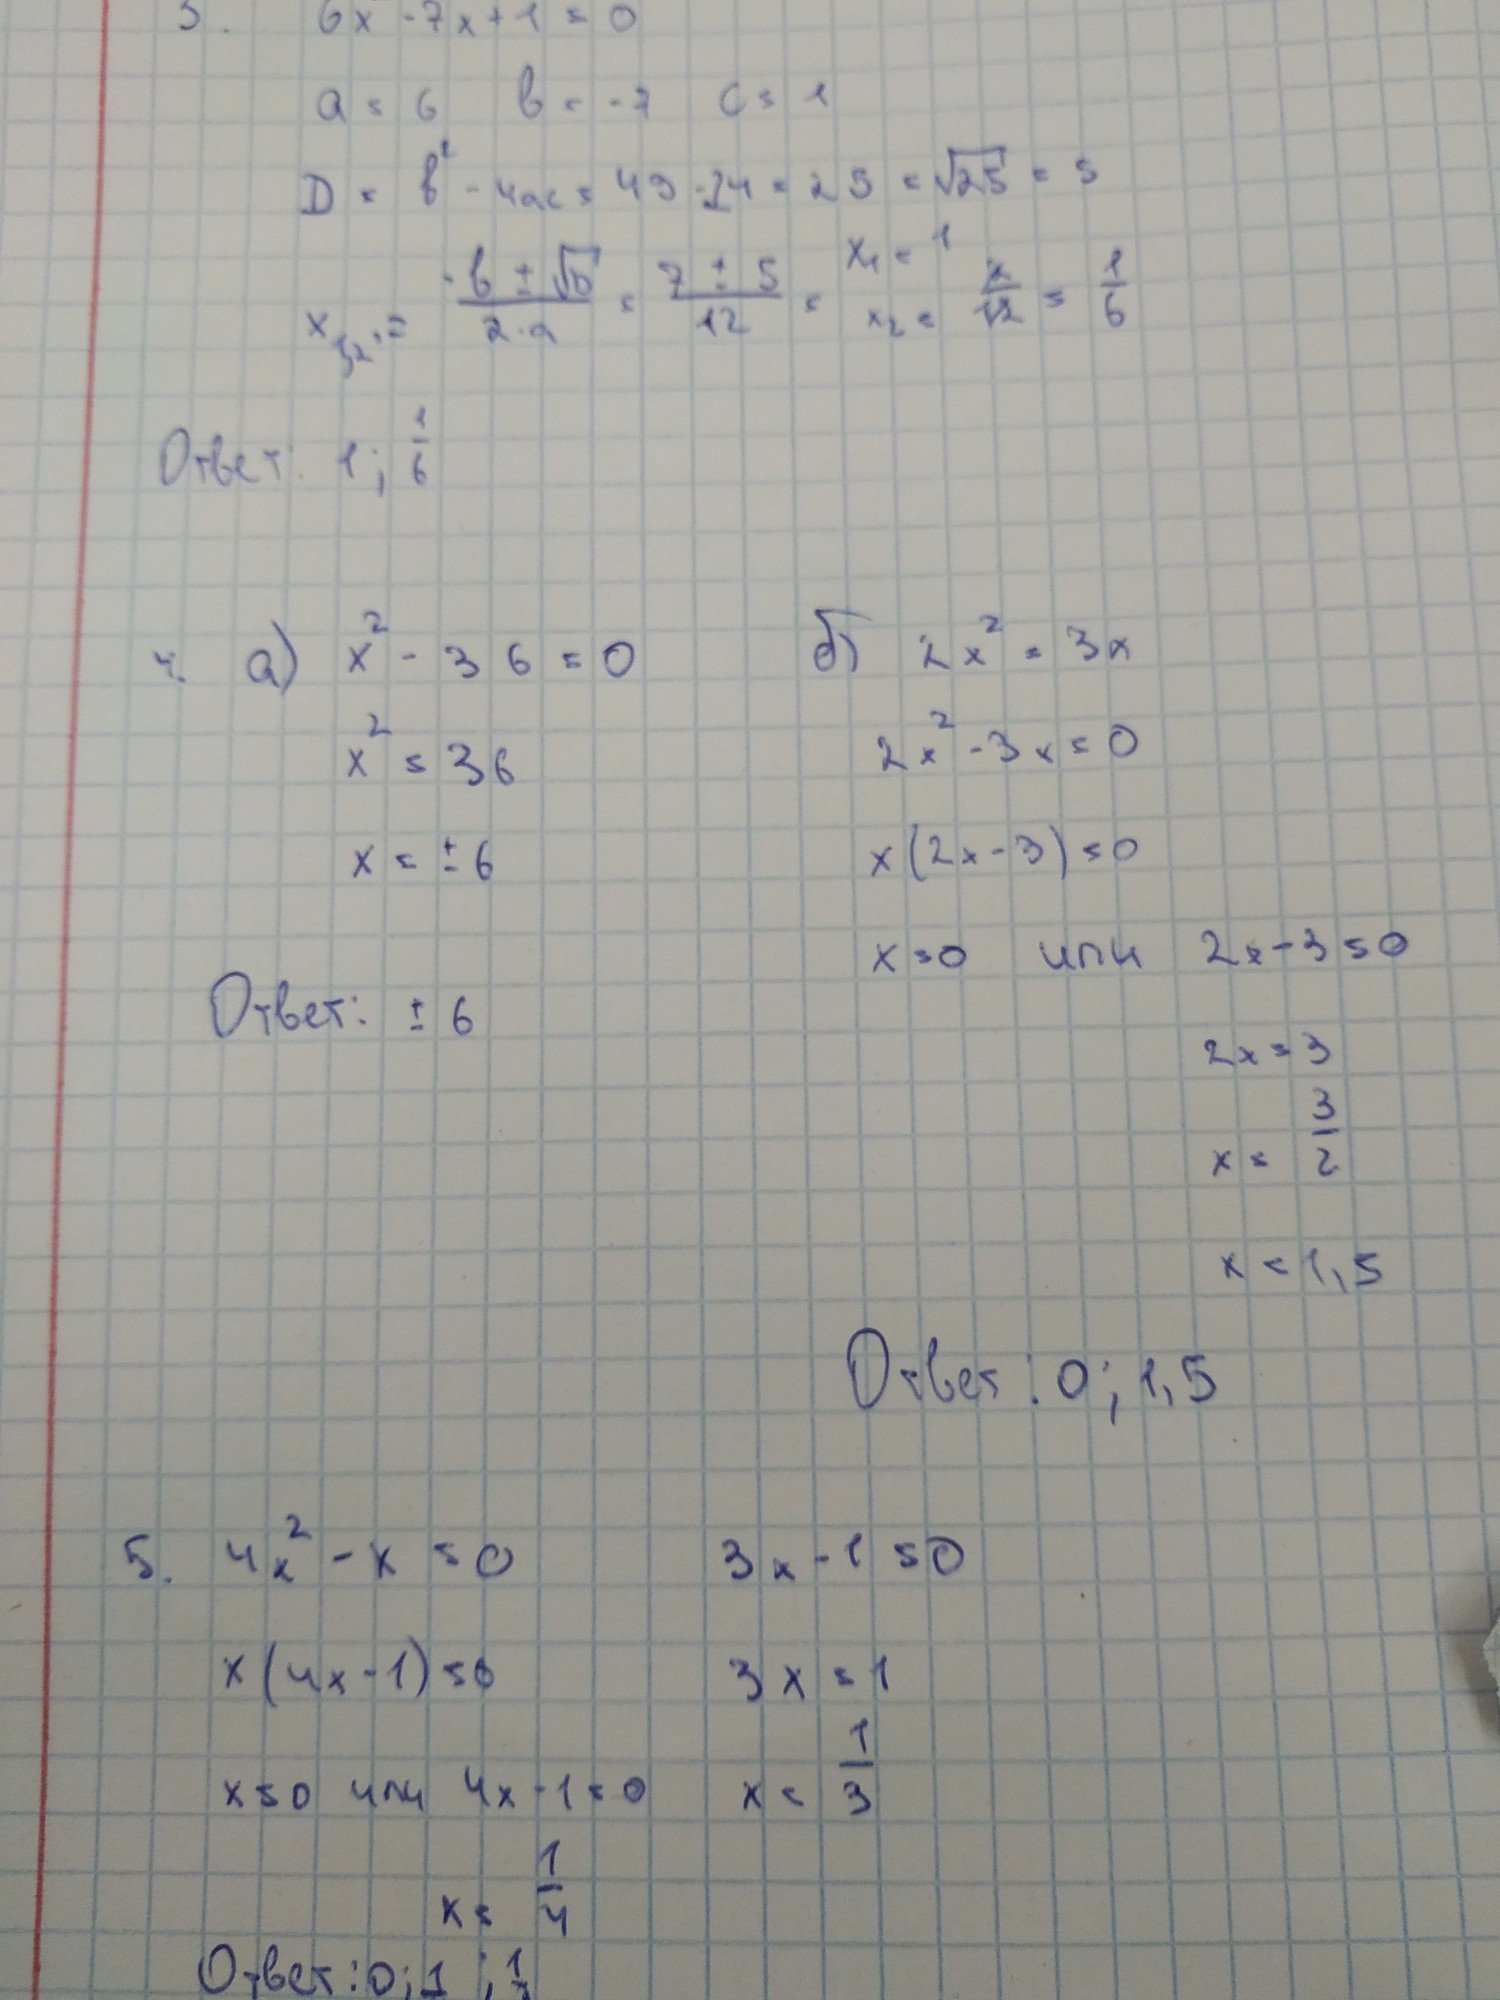 3. 6x² - 7x + 1 = 0
a = 6 b = -7 c = 1
D = b² - 4ac = 49 - 24 = 25 = √25 = 5
x₁,₂ = (-b ± √D)/(2·a) = (7 ± 5)/12 = x₁ = 1 x₂ = 2/12 = 1/6
Ответ: 1; 1/6
4. а) x² - 36 = 0
x² = 36
x = ± 6
Ответ: ± 6
б) 2x² = 3x
2x² - 3x = 0
x(2x - 3) = 0
x = 0 или 2x - 3 = 0
2x = 3
x = 3/2
x = 1,5
Ответ: 0; 1,5
5. 4x² - x = 0
x(4x - 1) = 0
x = 0 или 4x - 1 = 0
x = 1/4
3x - 1 = 0
3x = 1
x = 1/3
Ответ: 0; 1